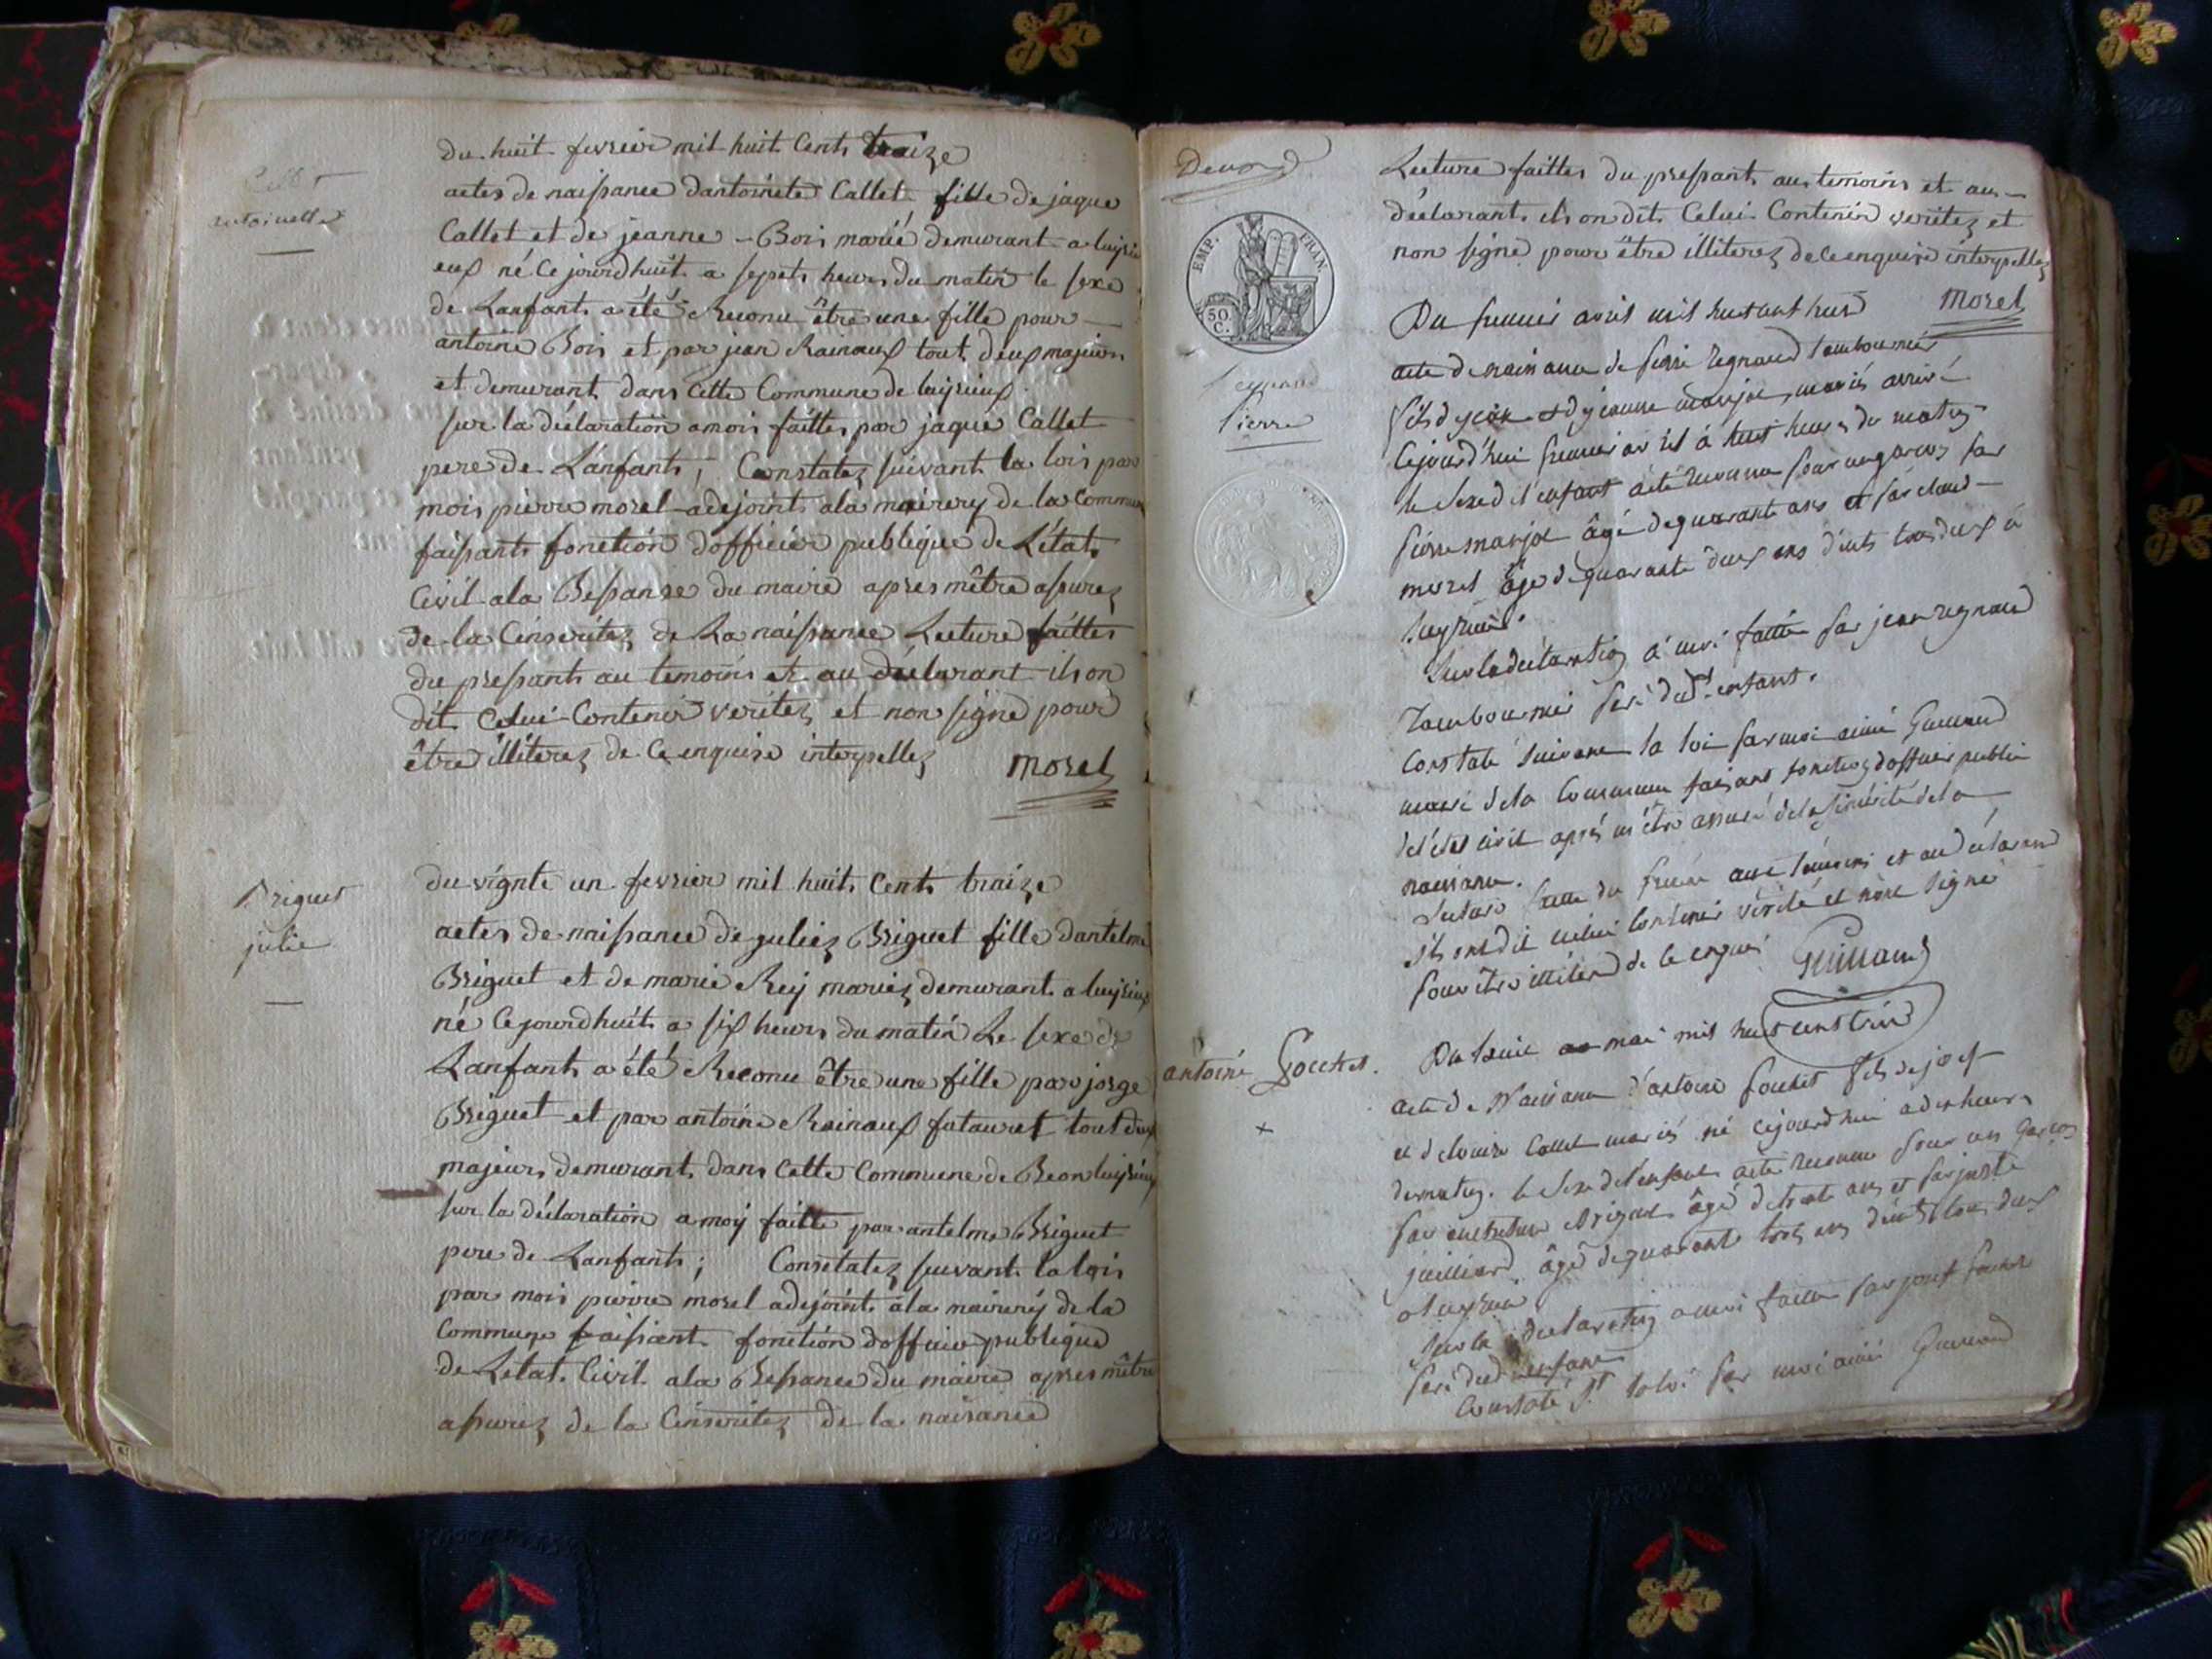 Callet
antoinette
du huit fevrier mil huit Cents traize
actes de naissance dantoinete Callet fille de jaque
Callet et de jeanne - Bois marié demurant a luyrieu
eux né Ce jourdhuit a sepets heurs du matin le sexe
de Lanfants a été Reconu être une fille pour
antoine Bois et par jean Rainaux tout deux majeurs
et demurant dans Cette Commune de luyrieux
sur la déclaration a mois faittes par jaque Callet
pere de Lanfants; Constatez suivant la lois par
mois pierre morel adejoints ala mairery de la Commune
faissants fonction dofficier publique de Létats
Civil ala Bessanse du maire apres mêtre assurez
de la Cinseritez de La naissance Lecture faittes
du pressants au temoins et au déclarant ils on
dit Celui Contenir veritez et non signe pour
être illiterez de Ce enquise interpellez
morel
Briguet
julie
du vignte un fevrier mil huit Cents traize
actes de naissance de juliez Briguet fille dantelme
Briguet et de marie Rey mariez demurant a luyrieux
né Ce jourdhuit a six heurs du matin Le sexe de
Lanfants a été Reconu être une fille par jorge
Briguet et par antoine Rainaux fatauret tout deux
majeurs demurant dans Cette Commune de Beon luyrieux
sur la déclaration a moy faitte par antelme Briguet
pere de Lanfants; Constatez suivant la lois
par mois pierre morel adejoint ala mairery de la
Commune faissant fonction dofficier publique
de Letat Civil ala Bessance du maire apres mêtre
assurez de la Cinseritez de la naisance
EMP. FRAN.
50
C.
Lecture faittes du pressants aus temoins et au
déclarant ils on dit Celui Contenir veritez et
non signe pour être illiterez de Ce enquise interpellez
morel
Regnaud
Pierre
Du premier avril mil huit cent
acte de naissance de pierre regnaud tambournier
fils de jean et de jeanne marjol mariés arrivé
Cejourd'hui premier avril à huit heures du matin
le sexe de l'enfant a été reconnu pour un garçon par
pierre marjol âgé de quarante ans et par claude
morel âgé de quarante deux ans d'eux tous deux à
luyrieux.
Sur la déclaration à moi faitte par jean regnaud
tambournier père dud.t enfant.
Constaté suivant la loi par moi aimé Guillaud
maire de la Commune faisant fonction d'officier public
de l'état civil après m'être assuré de la sincérité de la
naissance.
Lecture faite du présent aux témoins et au déclarant
ils ont dit celui contenir vérité et n'ont signé
pour être illitéré de ce enquis
Guillaud
antoine Pochet.
Du mai mil huit cent treize
acte de Naissance d'antoine pochet fils de josef
et de louise Callet mariés né cejourd'hui a dix heures
du matin. le sexe de l'enfant a été reconnu pour un garçon
par Briguet âgé de trente ans et par juste
juilliard âgé de quarante trois ans tous deux
a luyrieu
Sur la déclaration a moi faitte par josef pochet
père dud. enfant
Constaté s.t la loi par moi aimé Guillaud